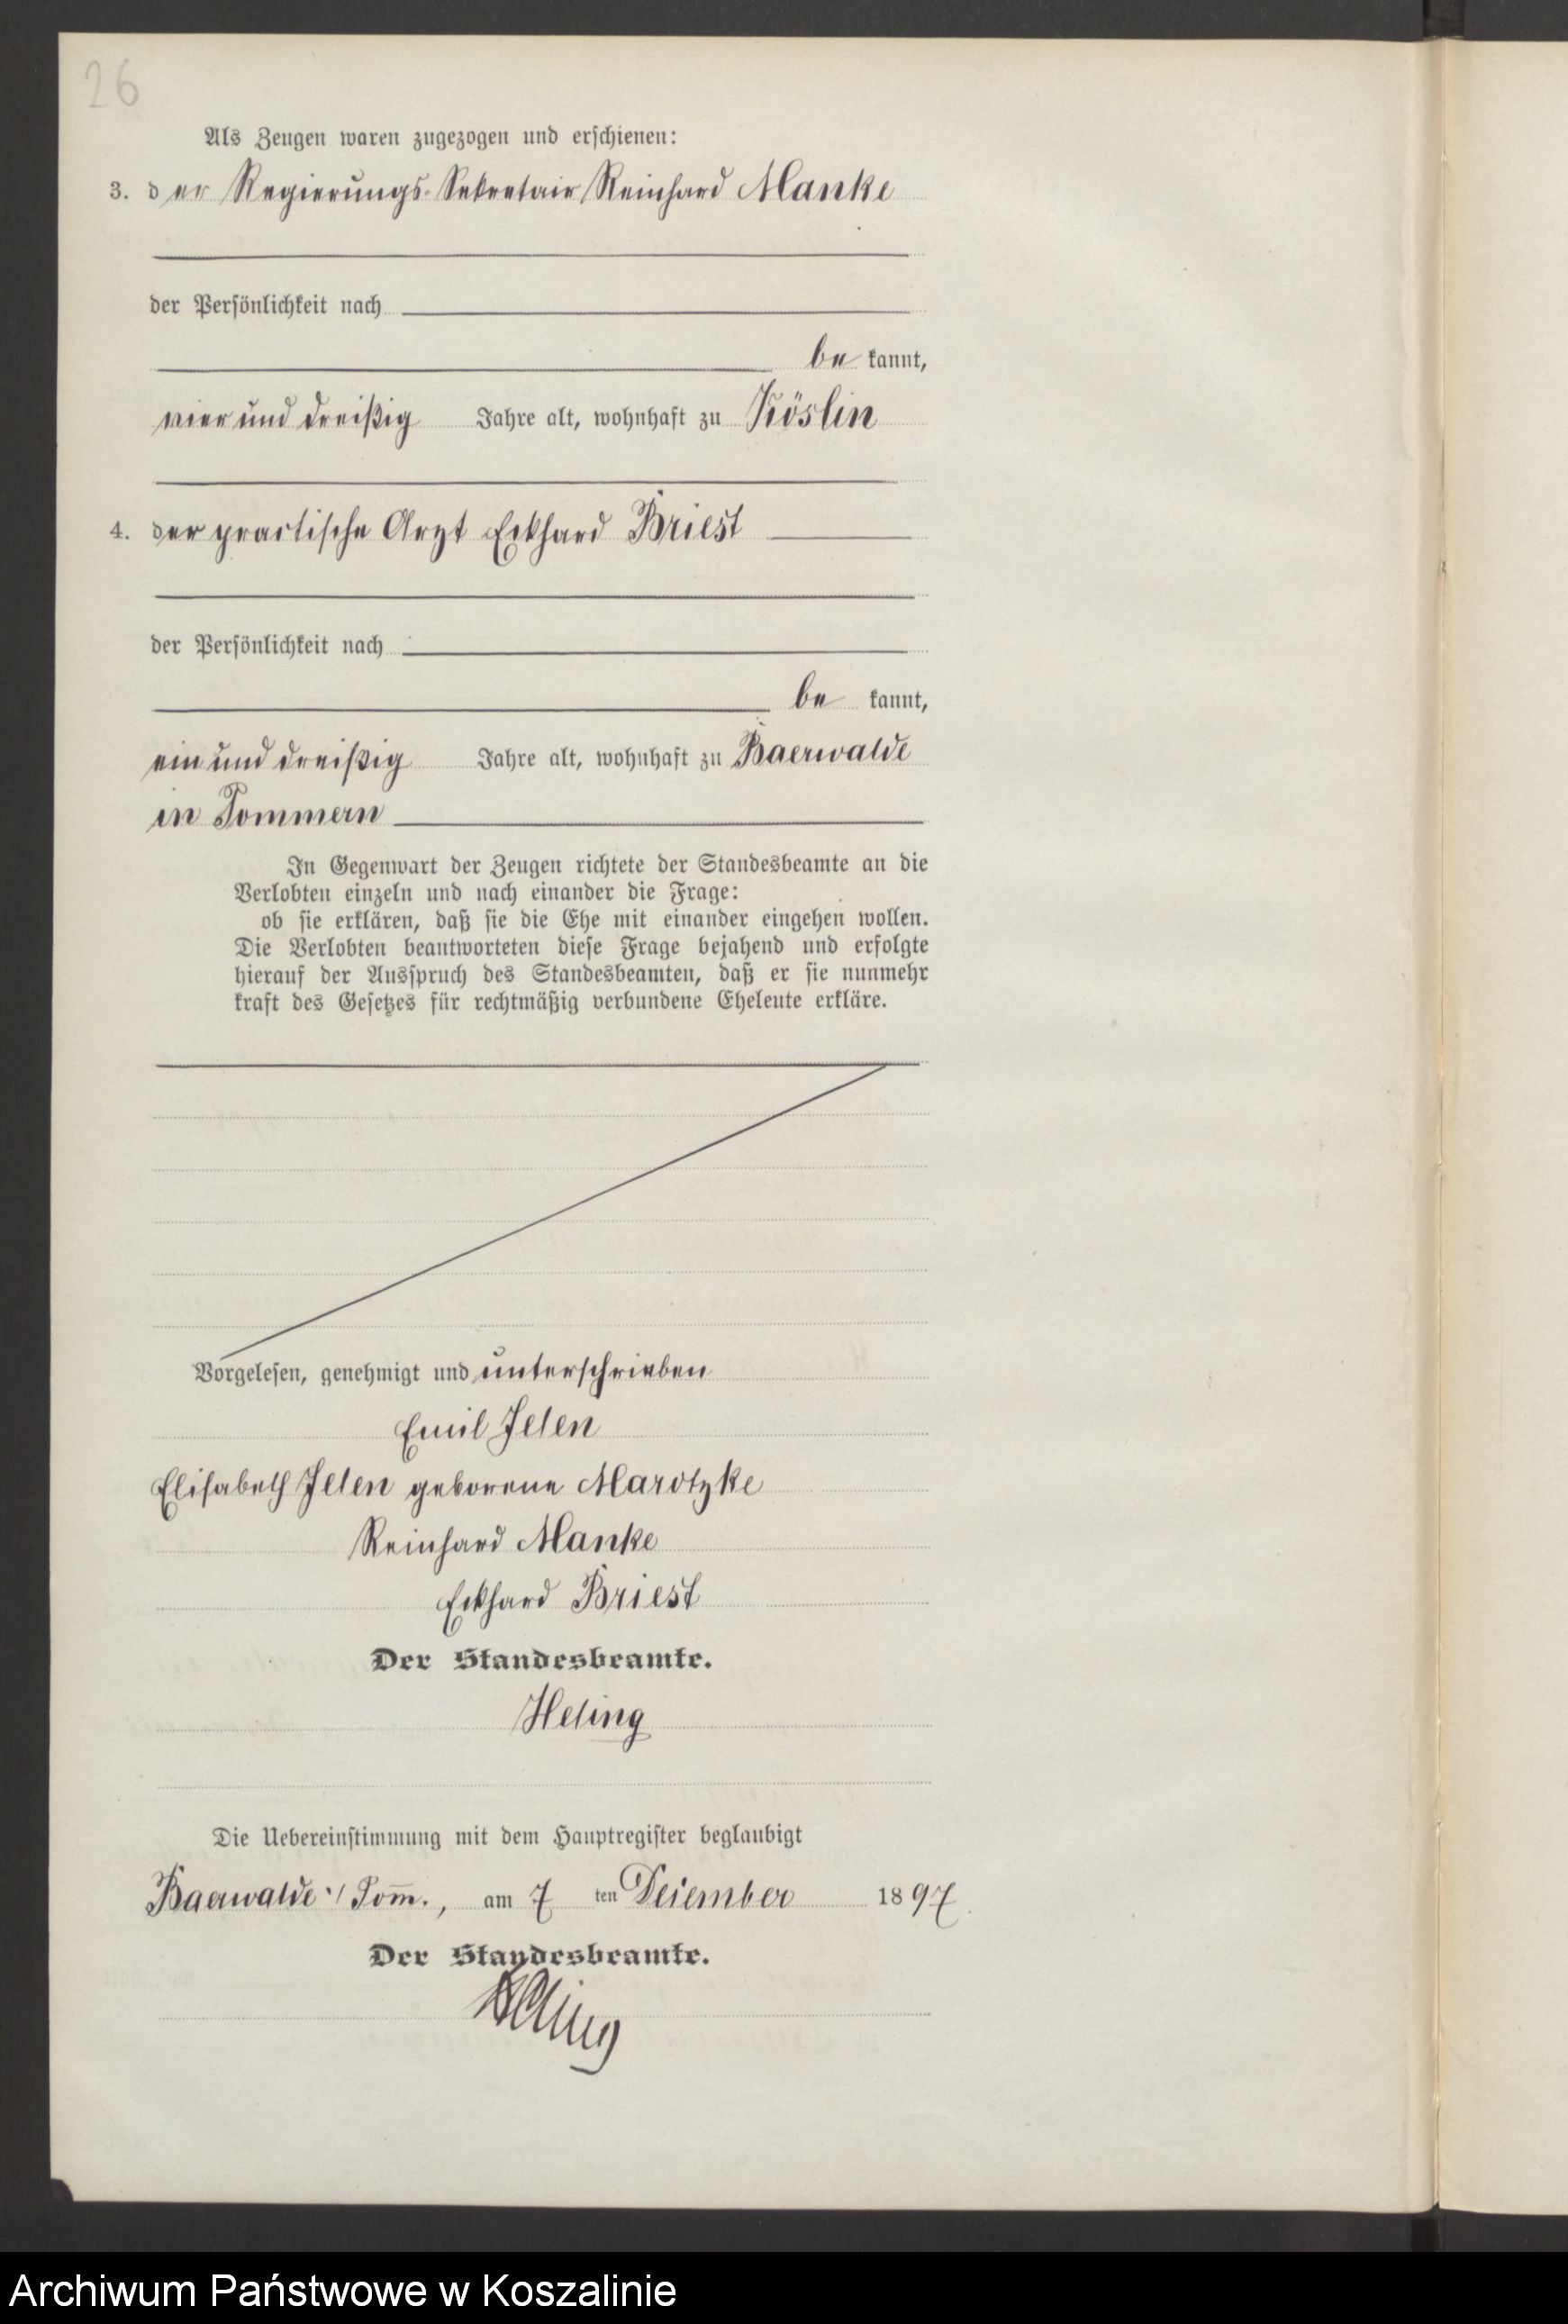 26
Als Zeugen waren zugezogen und erschienen:
3. der Regierungs-Sekretair Reinhard Manke
der Persönlichkeit nach
be kannt,
vier und dreißig Jahre alt, wohnhaft zu Köslin
4. der practische Arzt Eckhard Briest
der Persönlichkeit nach
be kannt,
ein und dreißig Jahre alt, wohnhaft zu Baerwalde
in Pommern
In Gegenwart der Zeugen richtete der Standesbeamte an die
Verlobten einzeln und nach einander die Frage:
ob sie erklären, daß sie die Ehe mit einander eingehen wollen.
Die Verlobten beantworteten diese Frage bejahend und erfolgte
hierauf der Ausspruch des Standesbeamten, daß er sie nunmehr
kraft des Gesetzes für rechtmäßig verbundene Eheleute erkläre.
Vorgelesen, genehmigt und unterschrieben
Emil Jeten
Elisabeth Jeten geborene Marotzke
Reinhard Manke
Eckhard Briest
Der Standesbeamte.
Heling
Die Uebereinstimmung mit dem Hauptregister beglaubigt
Baerwalde i/ Pom̅., am 7 ten Dezember 1897
Der Standesbeamte.
Heling
Archiwum Państwowe w Koszalinie